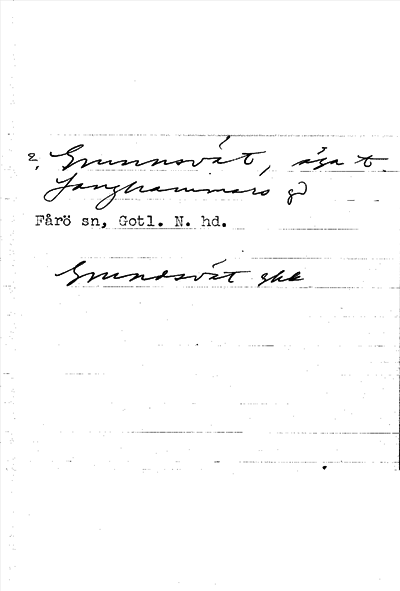 2, Grunnsvät, äga t.
Langhammars gd
Fårö sn, Gotl. N. hd.
Grundsvät gkk